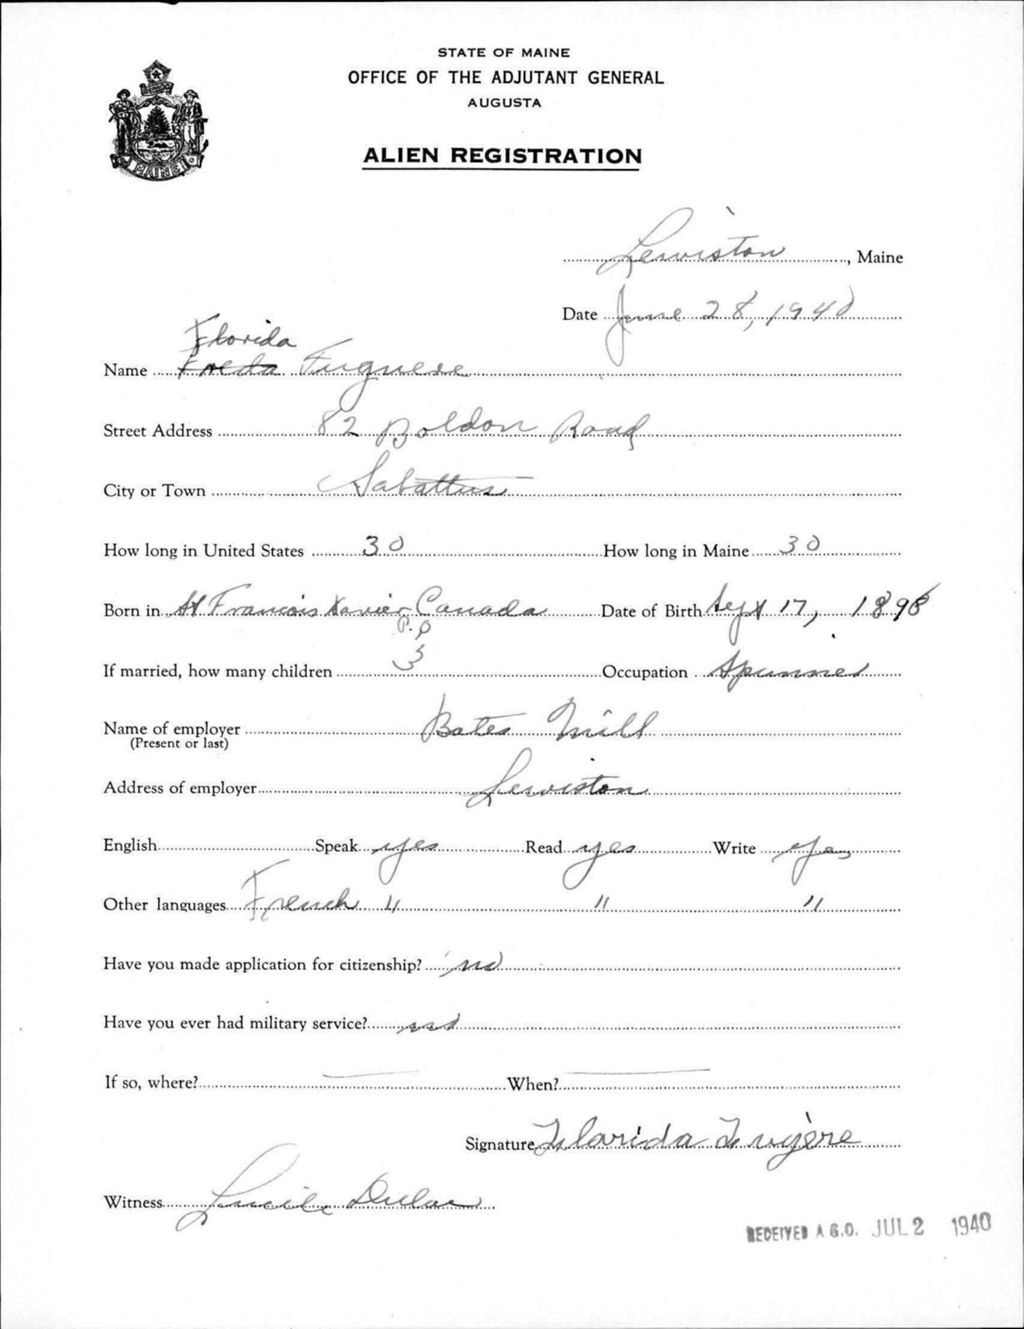 STATE OF MAINE
OFFICE OF THE ADJUTANT GENERAL
AUGUSTA
MAINE
ALIEN REGISTRATION
Lewiston, Maine
Date June 28, 1940
Florida
Name Freda Fuguere
Street Address 82 Boldon Road
City or Town Sabattus
How long in United States 30 How long in Maine 30
Born in St Francois Xavier Canada Date of Birth Sept 17, 1898
P.Q
If married, how many children 3 Occupation Spinner
Name of employer Bates Mill
(Present or last)
Address of employer Lewiston
English Speak yes Read yes Write yes
Other languages French " " "
Have you made application for citizenship? no
Have you ever had military service? no
If so, where? — When? —
Signature Florida Fugère
Witness Lucile Dulac
RECEIVED A.G.O. JUL 2 1940